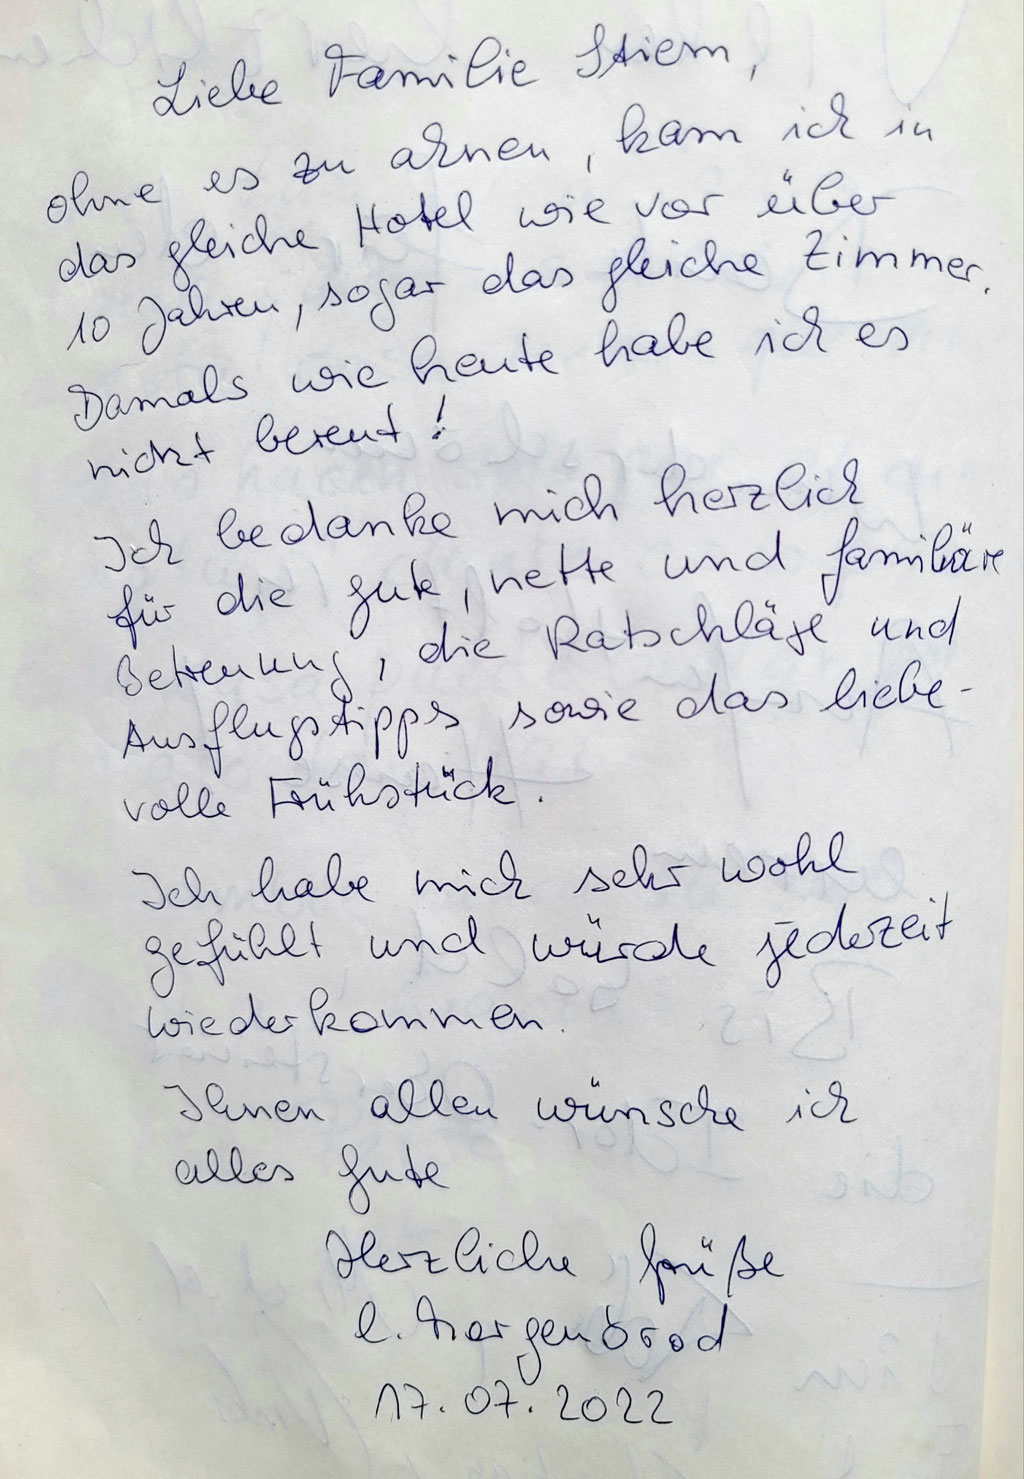 Liebe Familie Stiem,
ohne es zu ahnen, kam ich in
das gleiche Hotel wie vor über
10 Jahren, sogar das gleiche Zimmer.
Damals wie heute habe ich es
nicht bereut!
Ich bedanke mich herzlich
für die gute, nette und familiäre
Betreuung, die Ratschläge und
Ausflugstipps sowie das liebe-
volle Frühstück.
Ich habe mich sehr wohl
gefühlt und würde jederzeit
wiederkommen.
Ihnen allen wünsche ich
alles Gute
Herzliche Grüße
C. Morgenbrod
17.07.2022